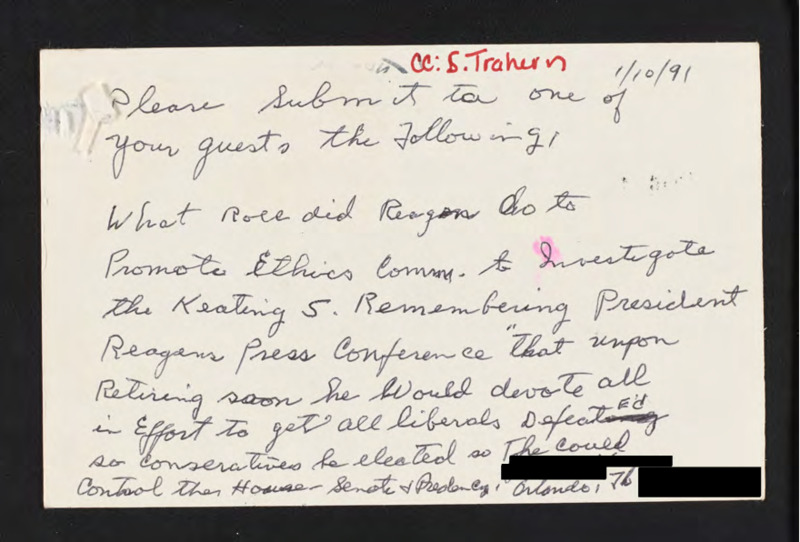 cc: S. Trahern
1/10/91
Please Submit to one of
your guests the Following,
What Role did Reagan Do to
Promote Ethics Comm. to Investigate
the Keating 5. Remembering President
Reagens Press Conference "that unpon
Retiring soon he Would devote all
in Effort to get all liberals DefeatEd
so conseratives be elected so The could
Control the House - Senate & Predency," Orlando,